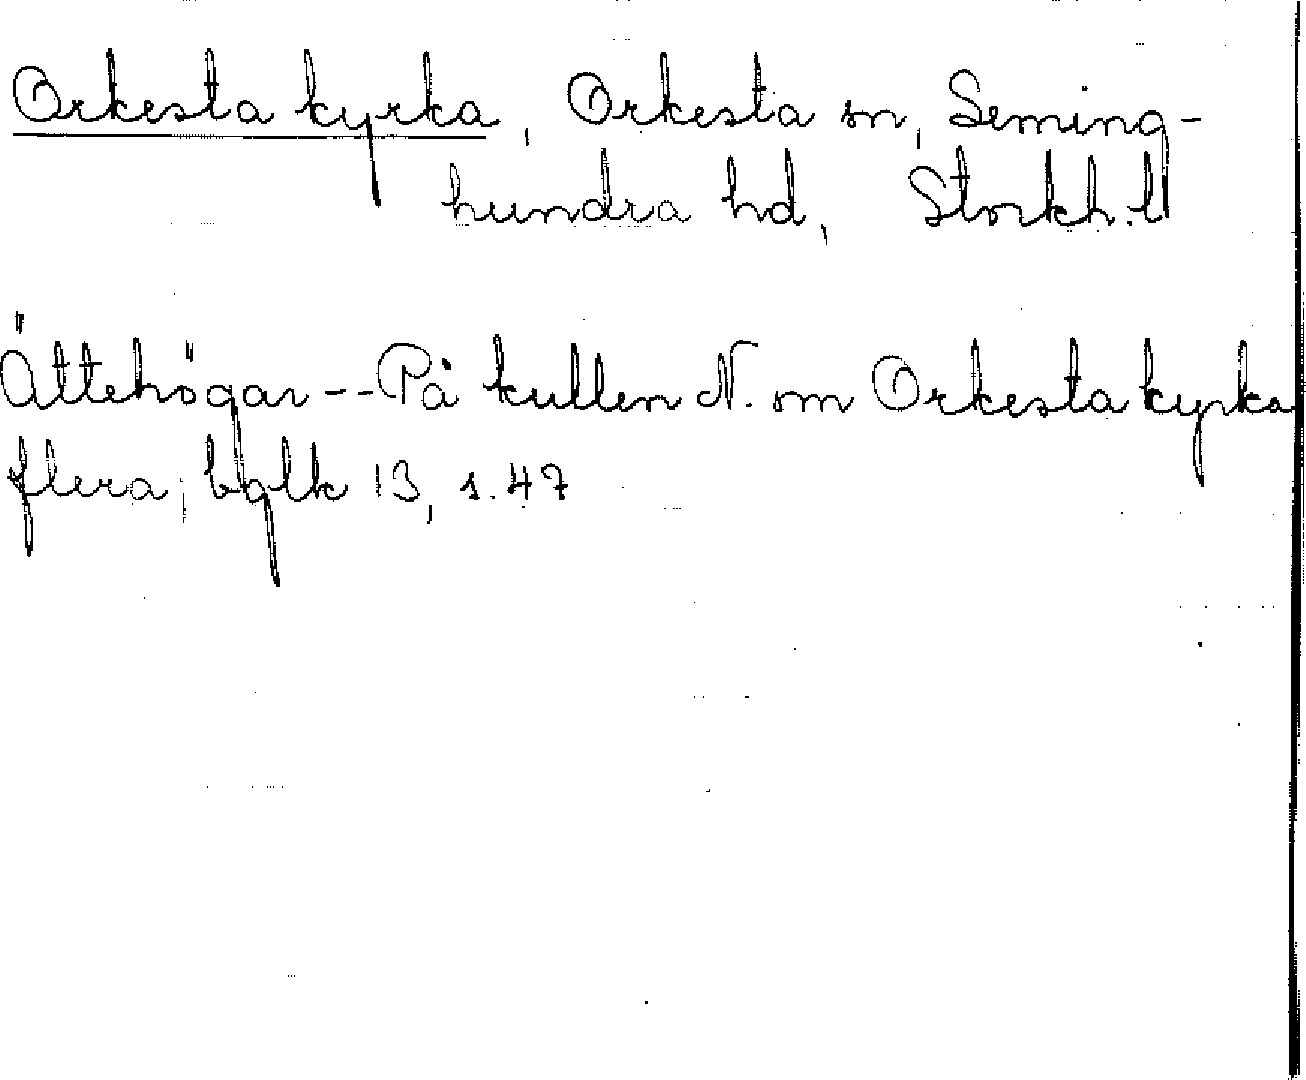 Orkesta kyrka, Orkesta sn, Seming-
hundra hd, Stockh. l
Ättehögar -- På kullen N. om Orkesta kyrka
flera; bglk 13, s. 47